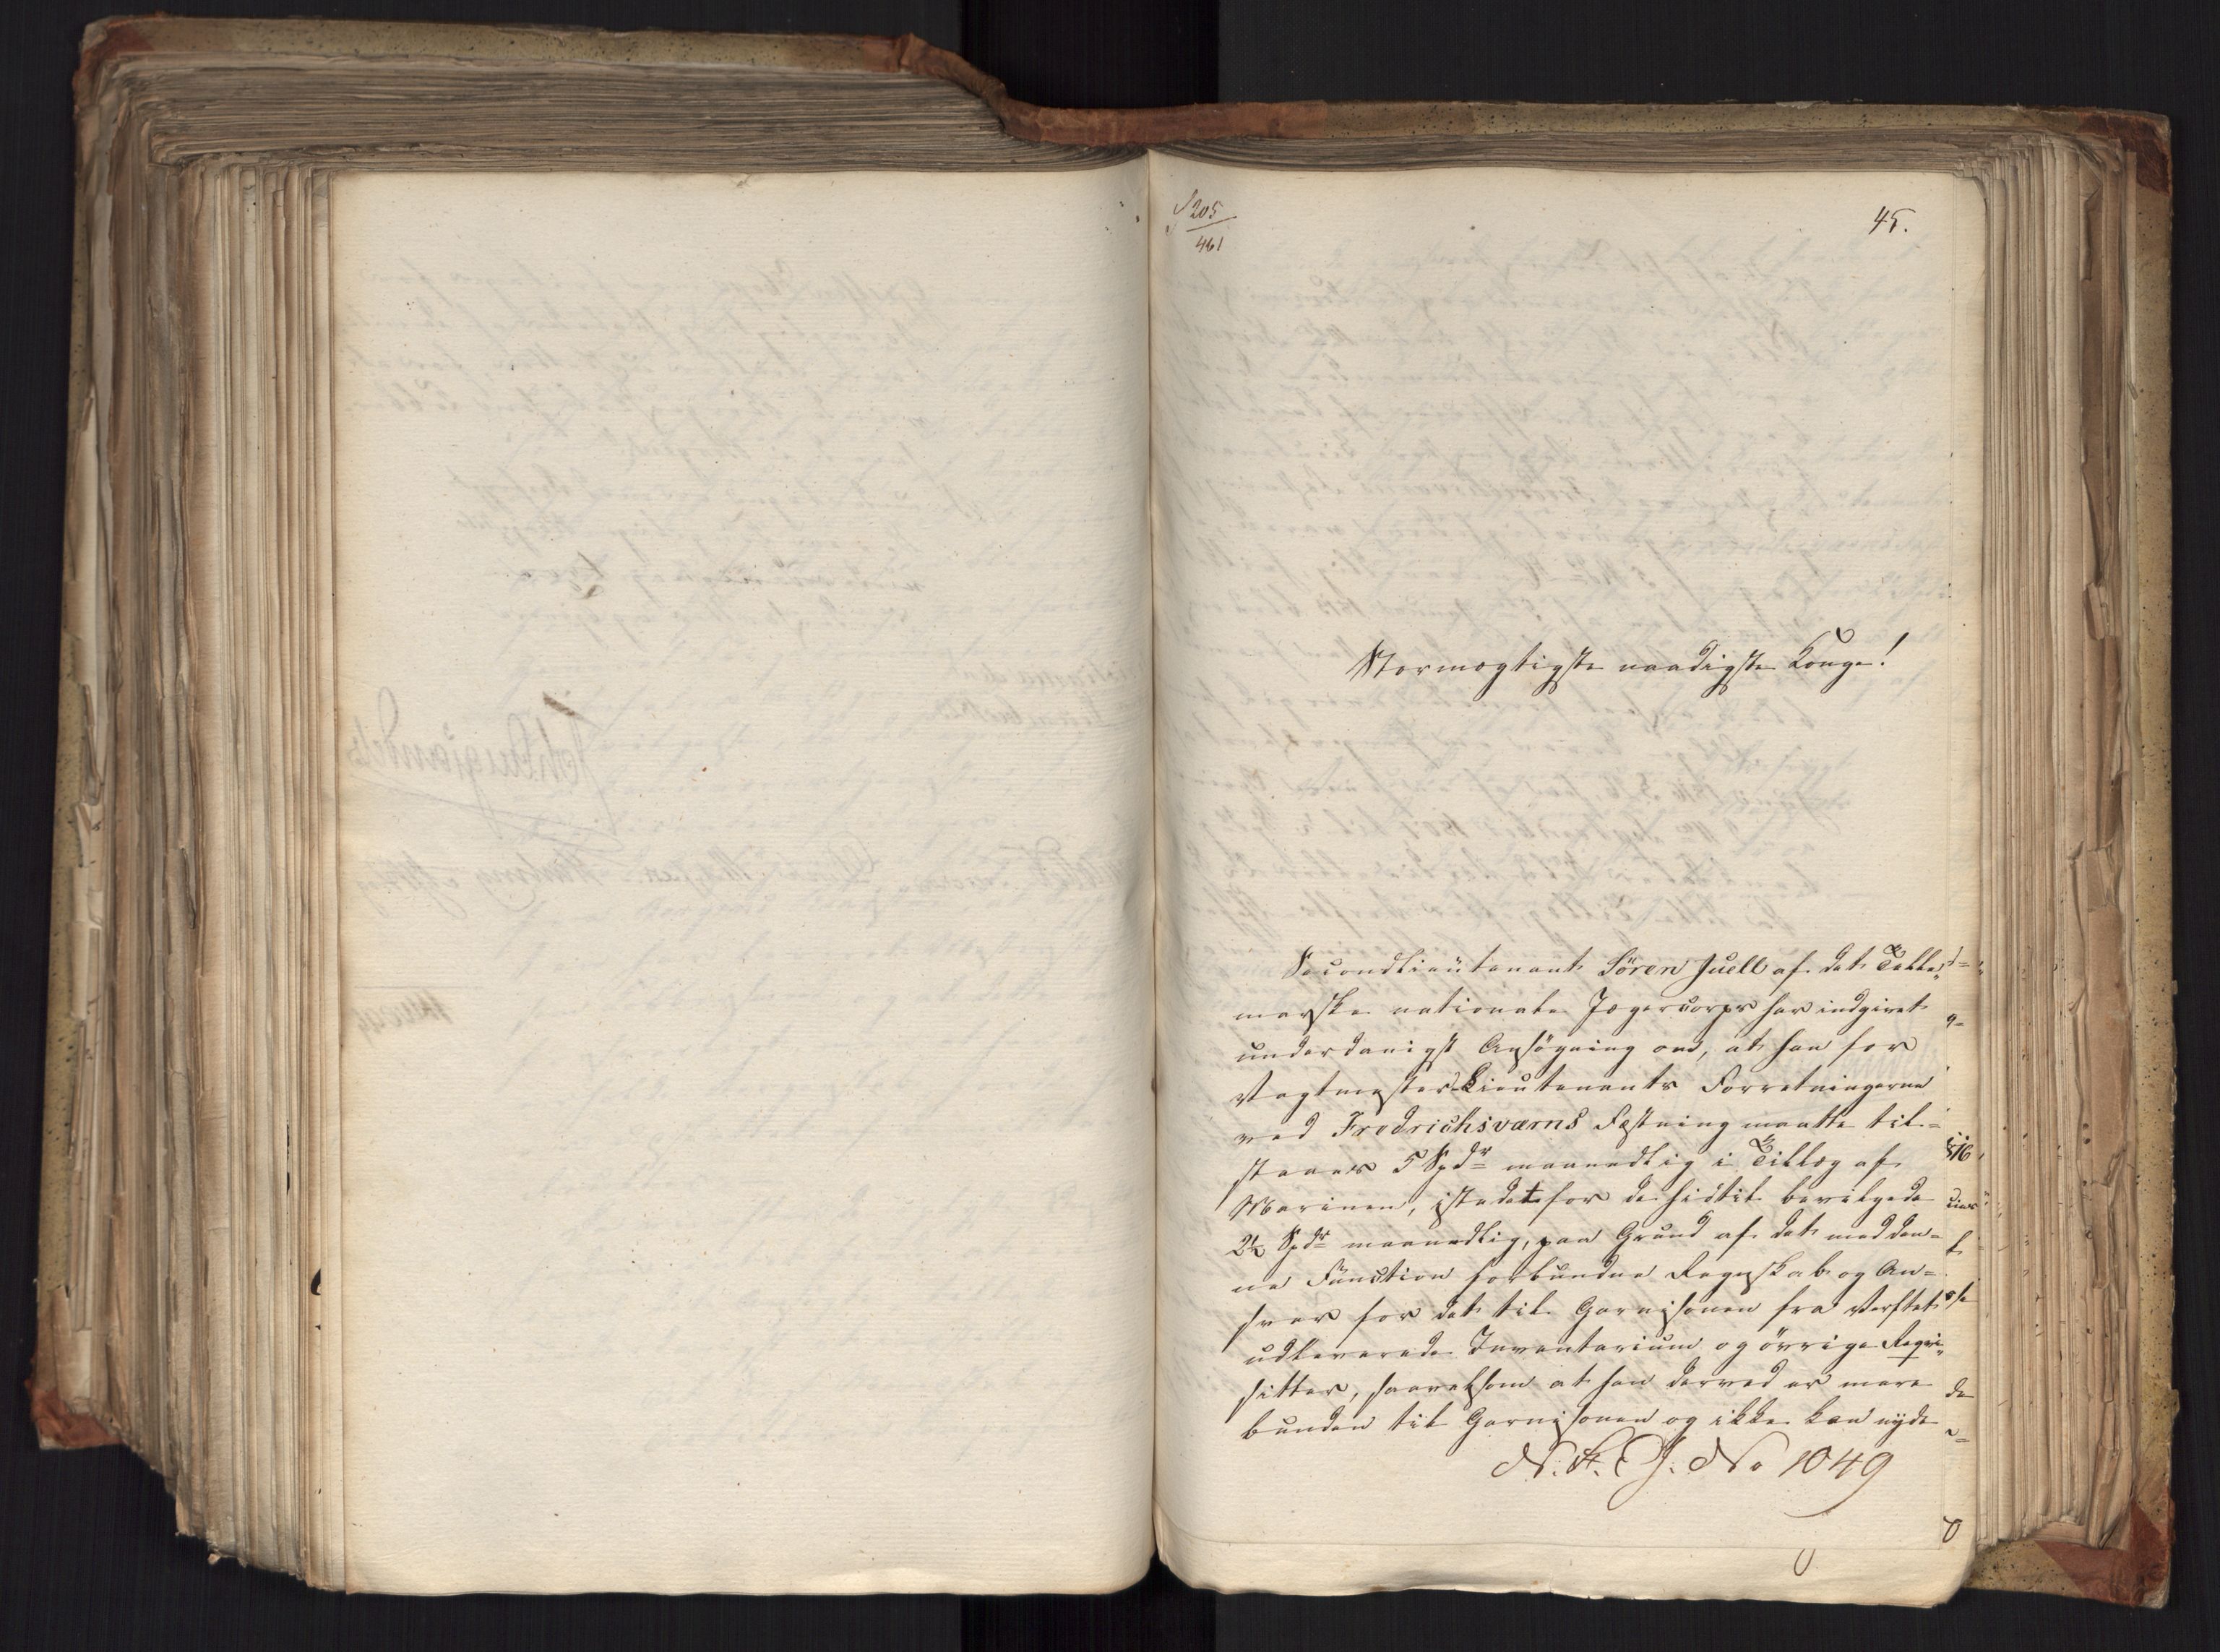 205
461
45.
Stormægtigste naadigste Konge!
Secondlieutenant Sören Juell af det Telle„
marske nationale Jægercorps har indgivet
underdanigst Ansögning om, at han for
Vagtmester-Lieutenants Forretningerne
ved Fredrichsværns Fæstning maatte til=
staaes 5 Spdr maanedlig i Tillæg af
Marinen, istedetfor de hidtil bevilgede
2½ Spdr maanedlig, paa Grund af det med den=
ne Function forbundne Regnskab og An=
svar for det til Garnisonen fra Verftet
udleverede Inventarium og övrige Reqvi„
sitter, saavelsom at han derved er mere
bunden til Garnisonen og ikke kan nyde
N. St. E J. No 1049